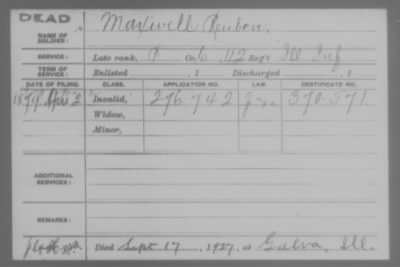 DEAD
NAME OF SOLDIER: Maxwell Reuben.
SERVICE: Late rank, P Co. C, 112 Reg't Ill Inf
TERM OF SERVICE: Enlisted , 1 Discharged , 1
DATE OF FILING. CLASS. APPLICATION NO. LAW. CERTIFICATE NO.
1879 Apr 2 Invalid, 276742 370.571
Widow,
Minor,
ADDITIONAL SERVICES:
REMARKS:
Died Sept 17, 1927, at Galva, Ill.